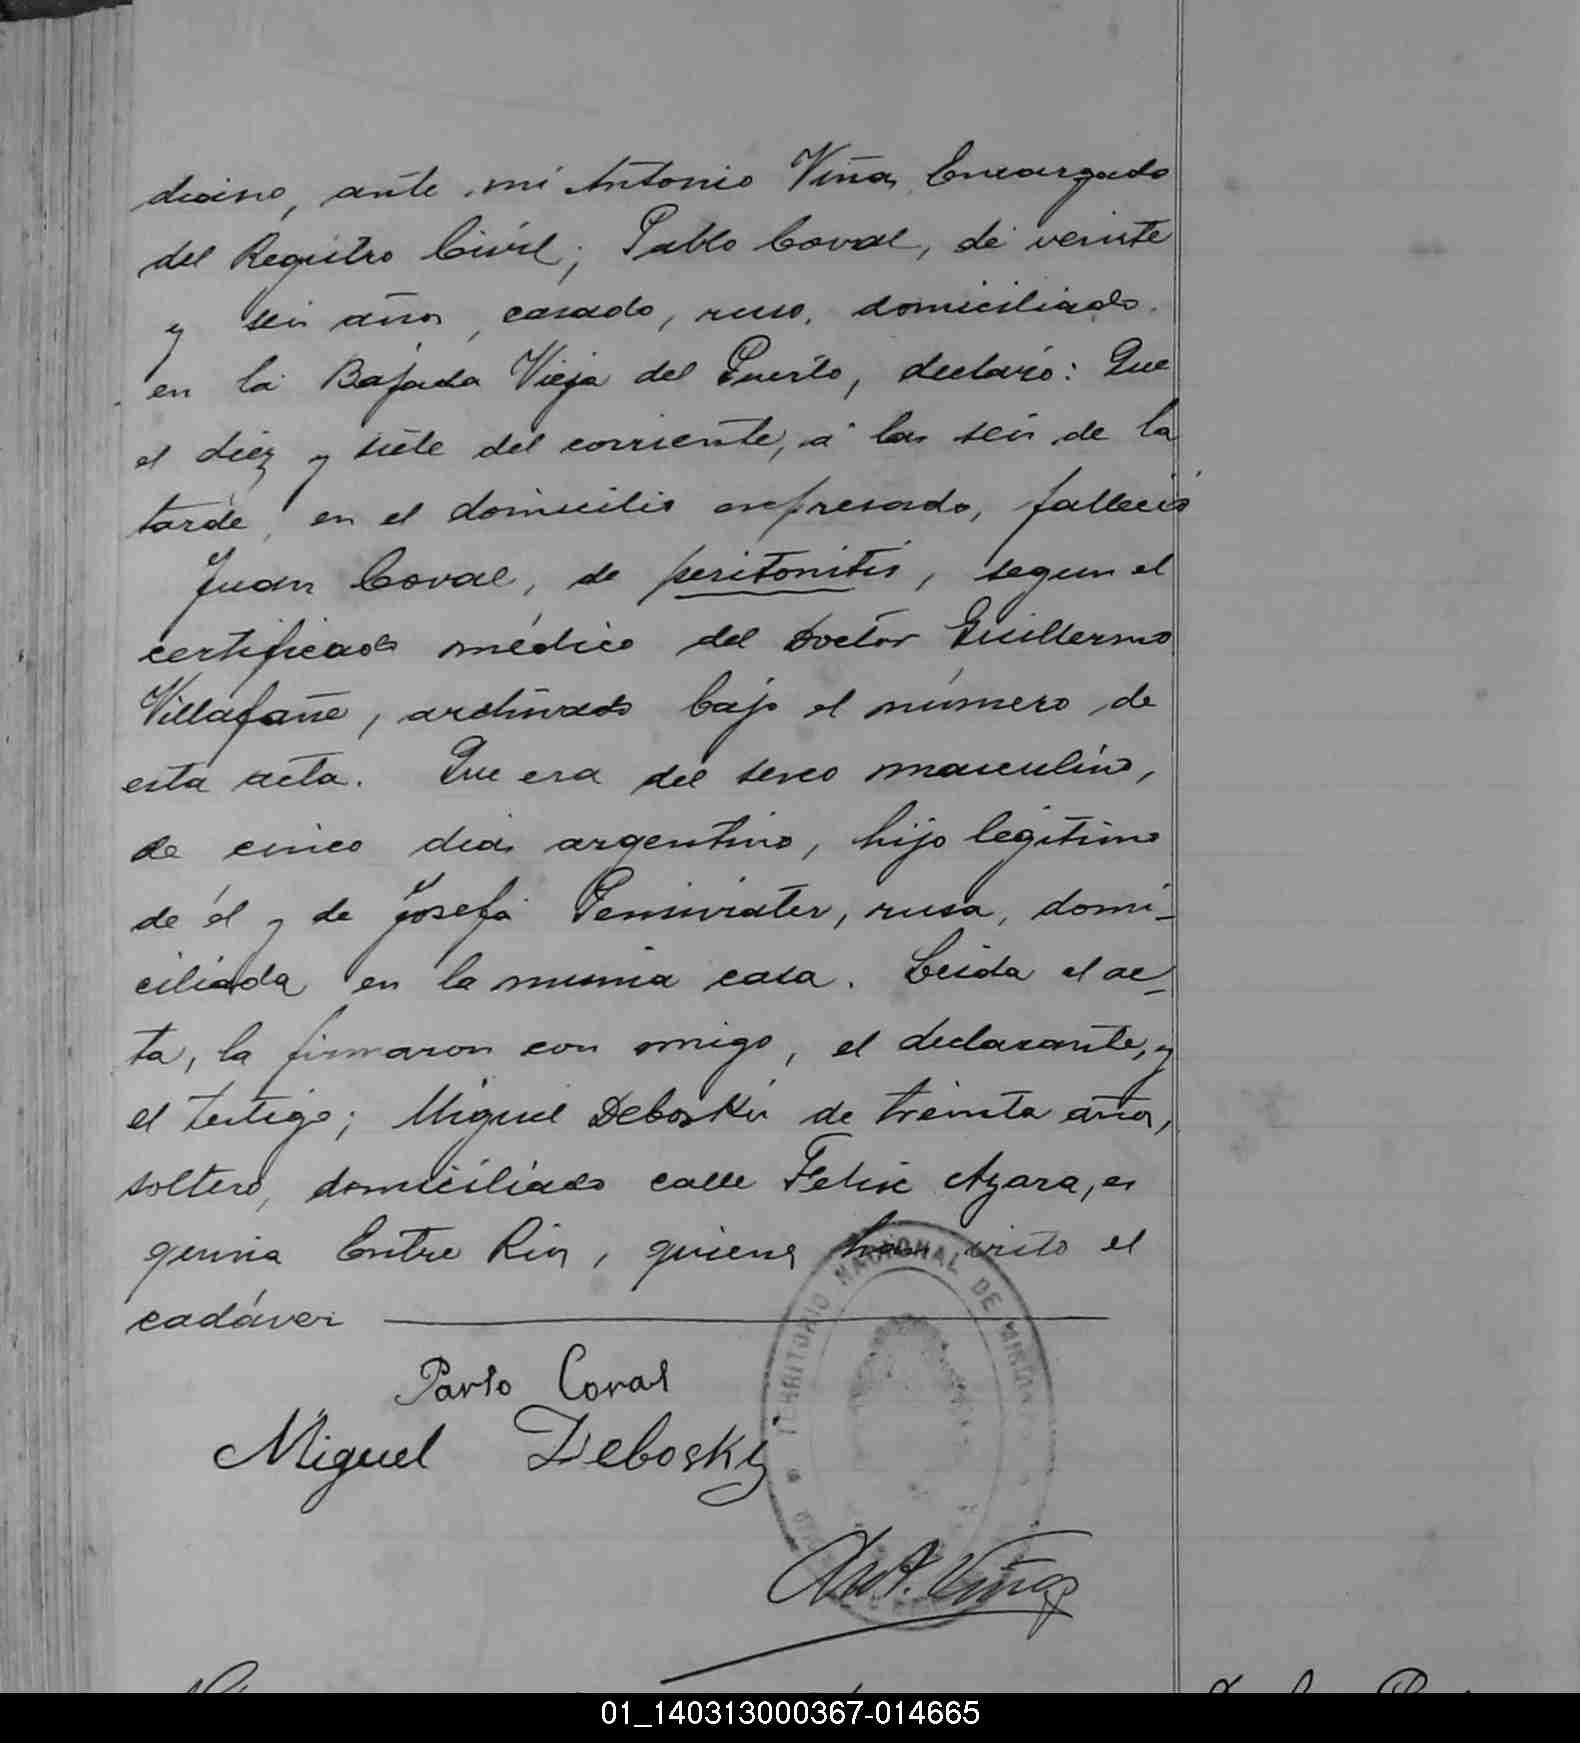 diano, ante mi Antonio Viñas Encargado
del Registro Civil; Pablo Coval, de veinte
y seis años, casado, ruso, domiciliado
en la Bajada Vieja del Puerto, declaró: Que
el diez y siete del corriente, á las seis de la
tarde, en el domicilio expresado, falleció
Juan Coval, de peritonitis, segun el
certificado médico del Doctor Guillermo
Villafañe, archivado bajo el número de
esta acta. Que era del sexo masculino,
de cinco dias argentino, hijo legítimo
de él y de Josefa rusa, domi-
ciliada en la misma casa. Leida el ac-
ta, la firmaron con migo, el declarante, y
el testigo; Miguel Deboski de treinta años,
soltero, domiciliado calle Felix Azara, es
quina Entre Rios, quienes han visto el
cadáver
Pavlo Coval
Miguel Debosky
TERRITORIO NACIONAL DE MISIONES
Ant. Viñas
01_140313000367-014665